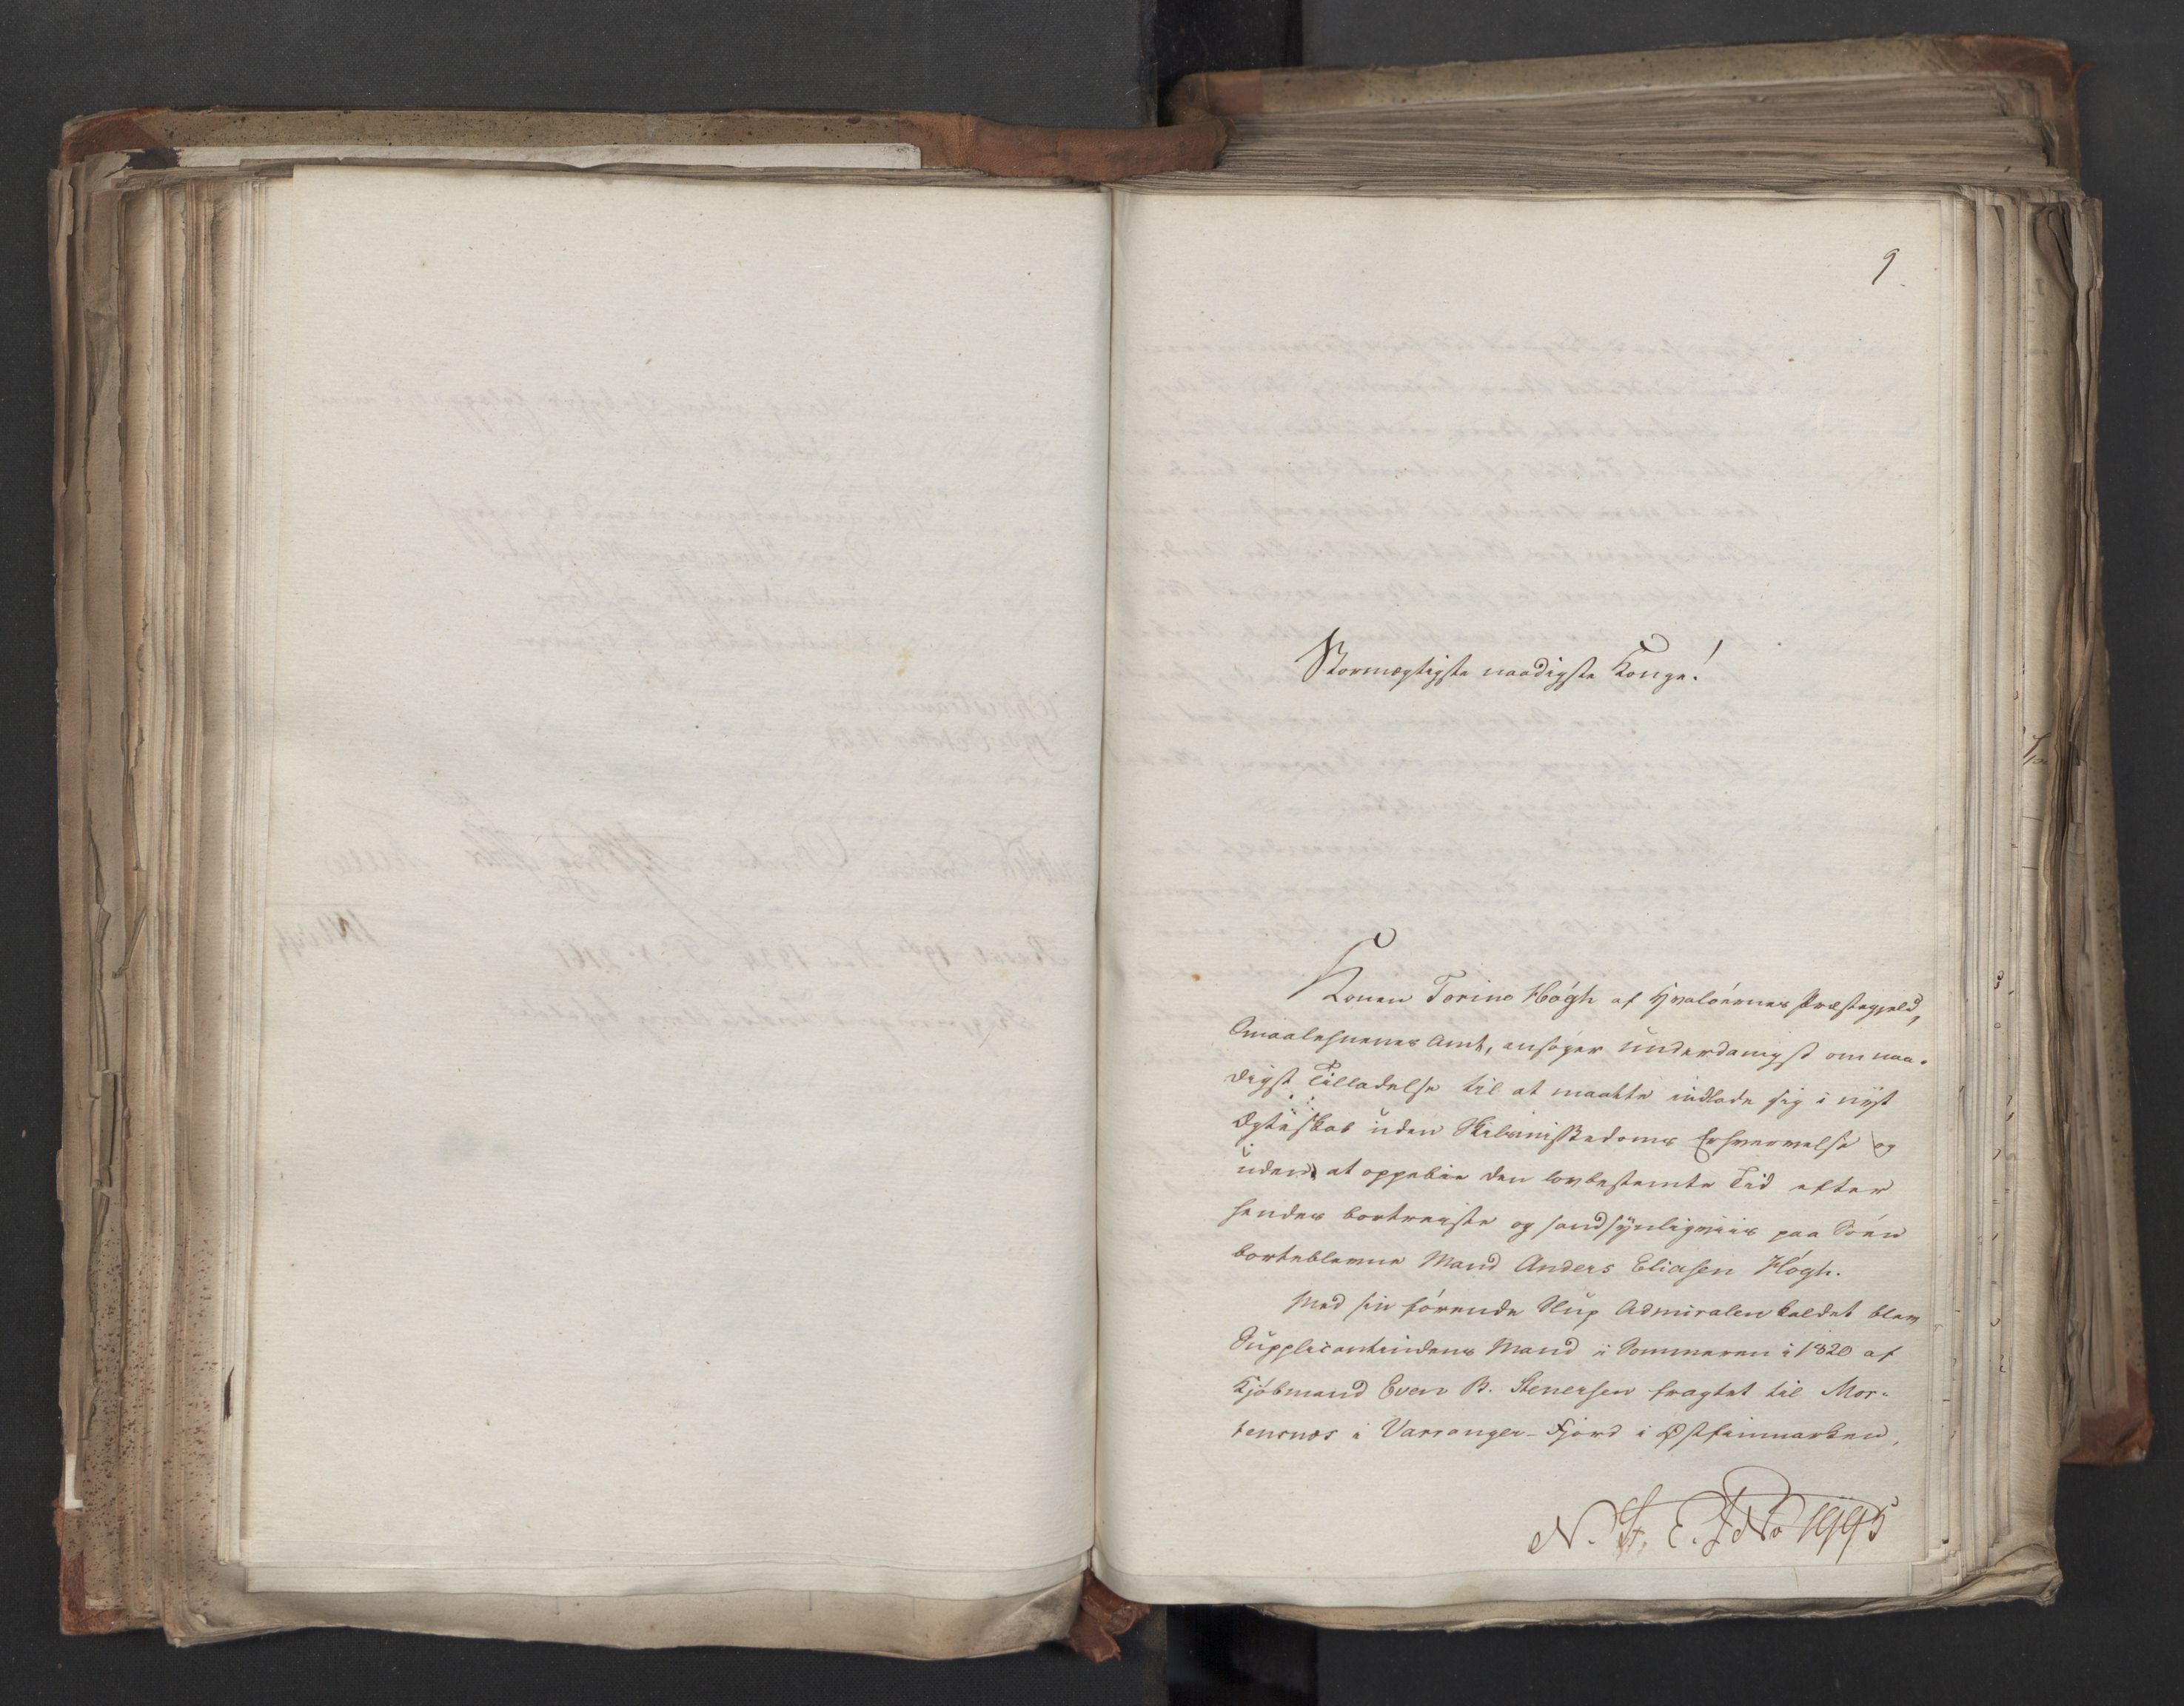 9
Stormægtigste naadigste Konge!
Konen Torine Høgh af Hvaløernes Præstegjeld,
Smaalehnenes Amt, ansøger underdanigst om naa-
digst Tilladelse til at maatte indlade sig i nyt
Ægteskab uden Skilsmissedoms Erhvervelse og
uden at oppebie den lovbestemte Tid efter
hendes bortreiste og sandsynligviis paa Søen
borteblevne Mand Anders Eliasen Høgh.
Med sin førende Slup Admiralen kaldet blev
Supplicantindens Mand i Sommeren i 1820 af
Kjøbmand Even B. Stenersen fragtet til Mor-
tensnæs i Varranger-Fjord i Østfinmarken,
N. St. E. J No 1995